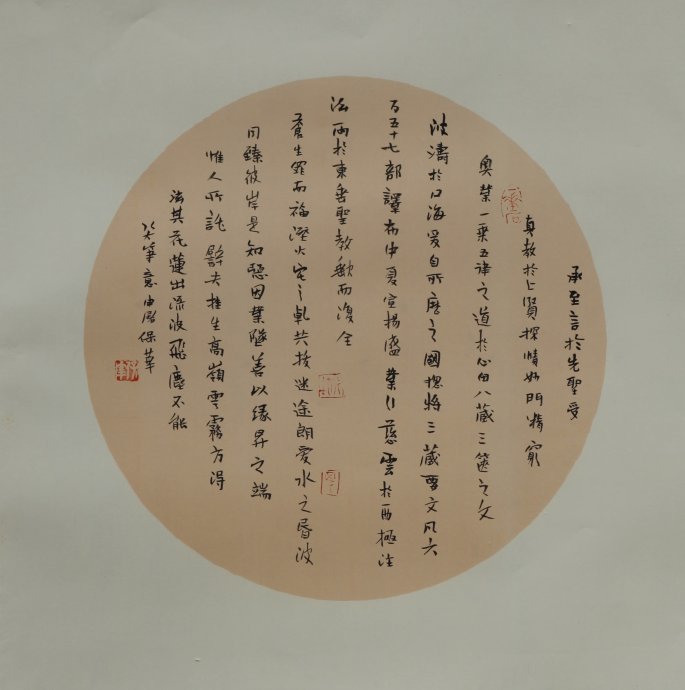 承至言於先聖受
真教於上賢探賾妙門精窮
奧業一乘五律之道於心田八藏三篋之文
波濤於口海爰自所歷之國總將三藏要文凡六
百五十七部譯布中夏宣揚盛業引慈雲於西極注
法雨於東垂聖教缺而復全
蒼生罪而福溼火宅之乾共拔迷途朗愛水之昏波
同臻彼岸是知惡因業墜善以緣昇之端
惟人所託譬夫桂生高嶺雲霧方得
泫其花蓮出淥波飛塵不能
筆意保華